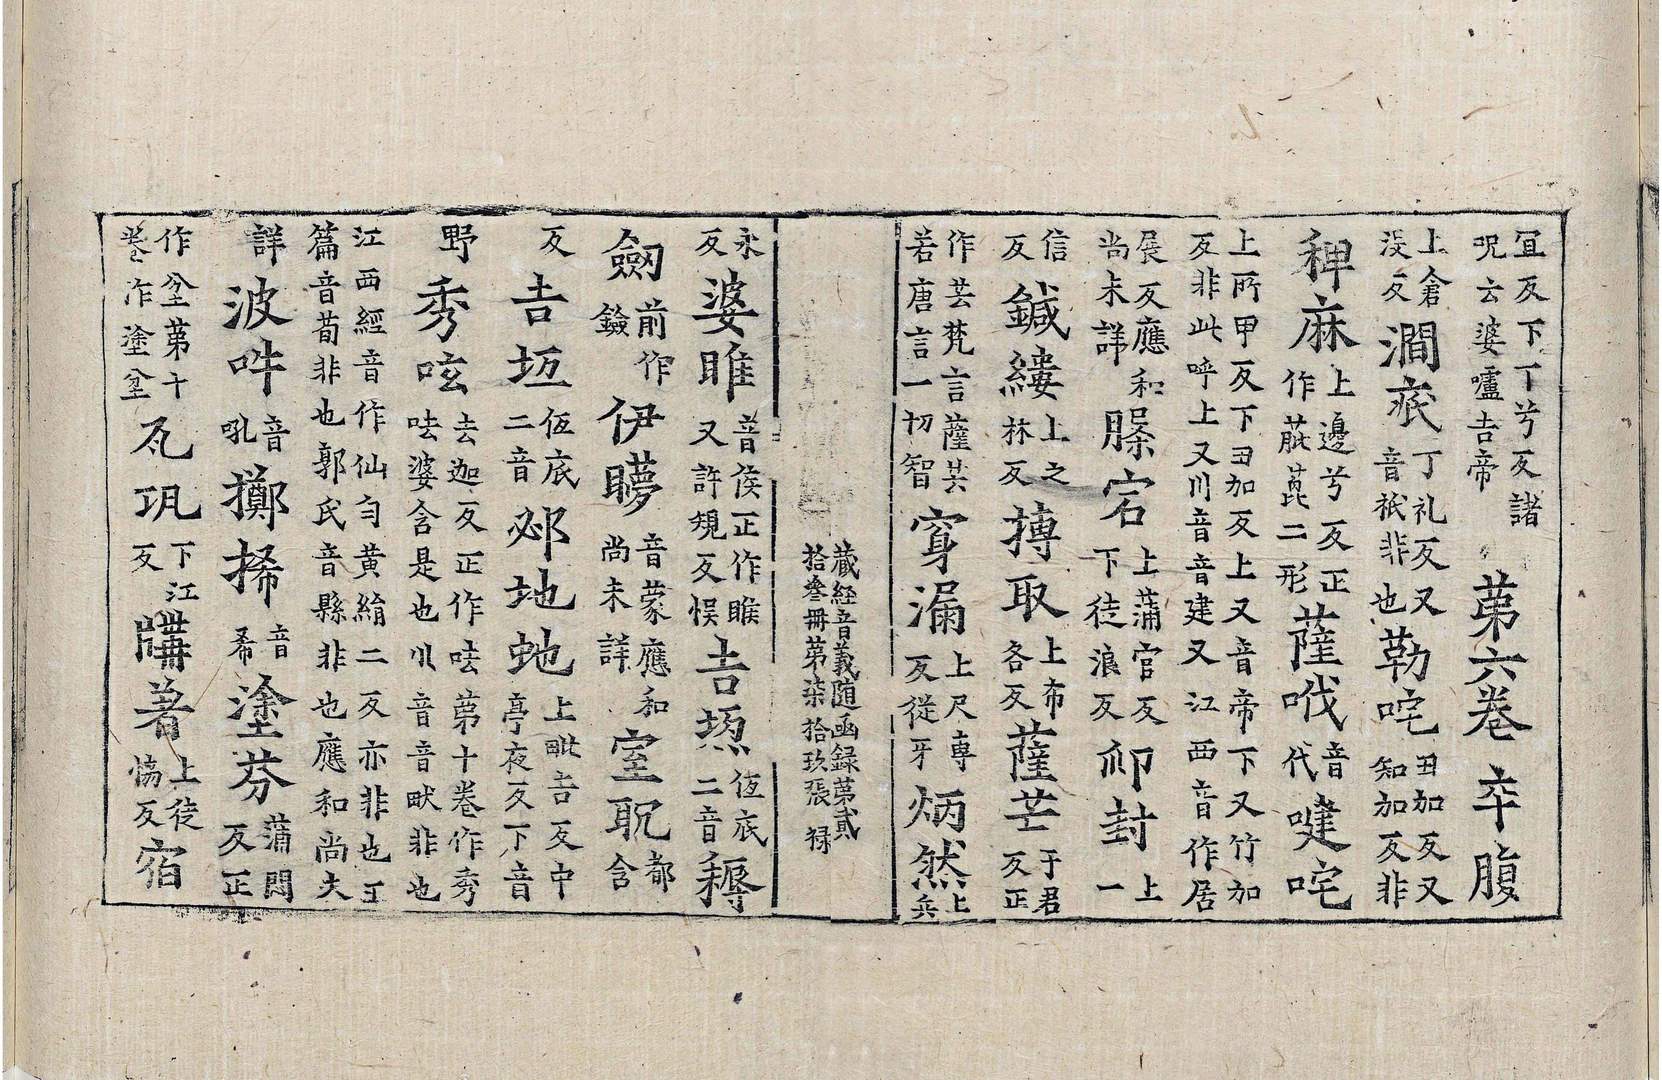 宜反下丁兮反諸呪云婆嚧吉帝 第六卷 卒腹
上倉没反 澗底 丁礼反又音衹非也 勒咤 丑加反又知加反非
稗麻 上邊兮反正作蓖萞二形 薩哦 音代 㗴咤
上所甲反下丑加反上又音帝下又竹加反非此呼上又川音音建又江西音作居
展反應和尚未詳 縢宕 上蒲官反下徒浪反 𨚫封 上一
信反 鍼縷 上之林反 搏取 上布各反 薩芒 于君反正
作芸梵言薩芸若唐言一切智 穿漏 上尺専反從牙 炳然 上兵
藏經音義随函録第貳拾叁冊第柒拾玖張 禄
永反 婆睢 音侯正作睺又許規反悞 吉㘽 伍底二音 𥡴
劒 前作鐱 伊矇 音蒙應和尚未詳 室耴 都含
反 吉坘 伍底二音 邲地虵 上毗吉反中亭夜反下音
野 秀呟 去迦反正作呿第十卷作秀呿婆含是也川音音畎非也
江西經音作仙勻黃絹二反亦非也丁篇音荀非也郭氏音縣非也應和尚失
詳 波吽 音吼 擲㧊 音希 塗芬 蒲悶反正
作坌第十卷作塗坌 瓨 下江反 牒著 上徒協反 宿